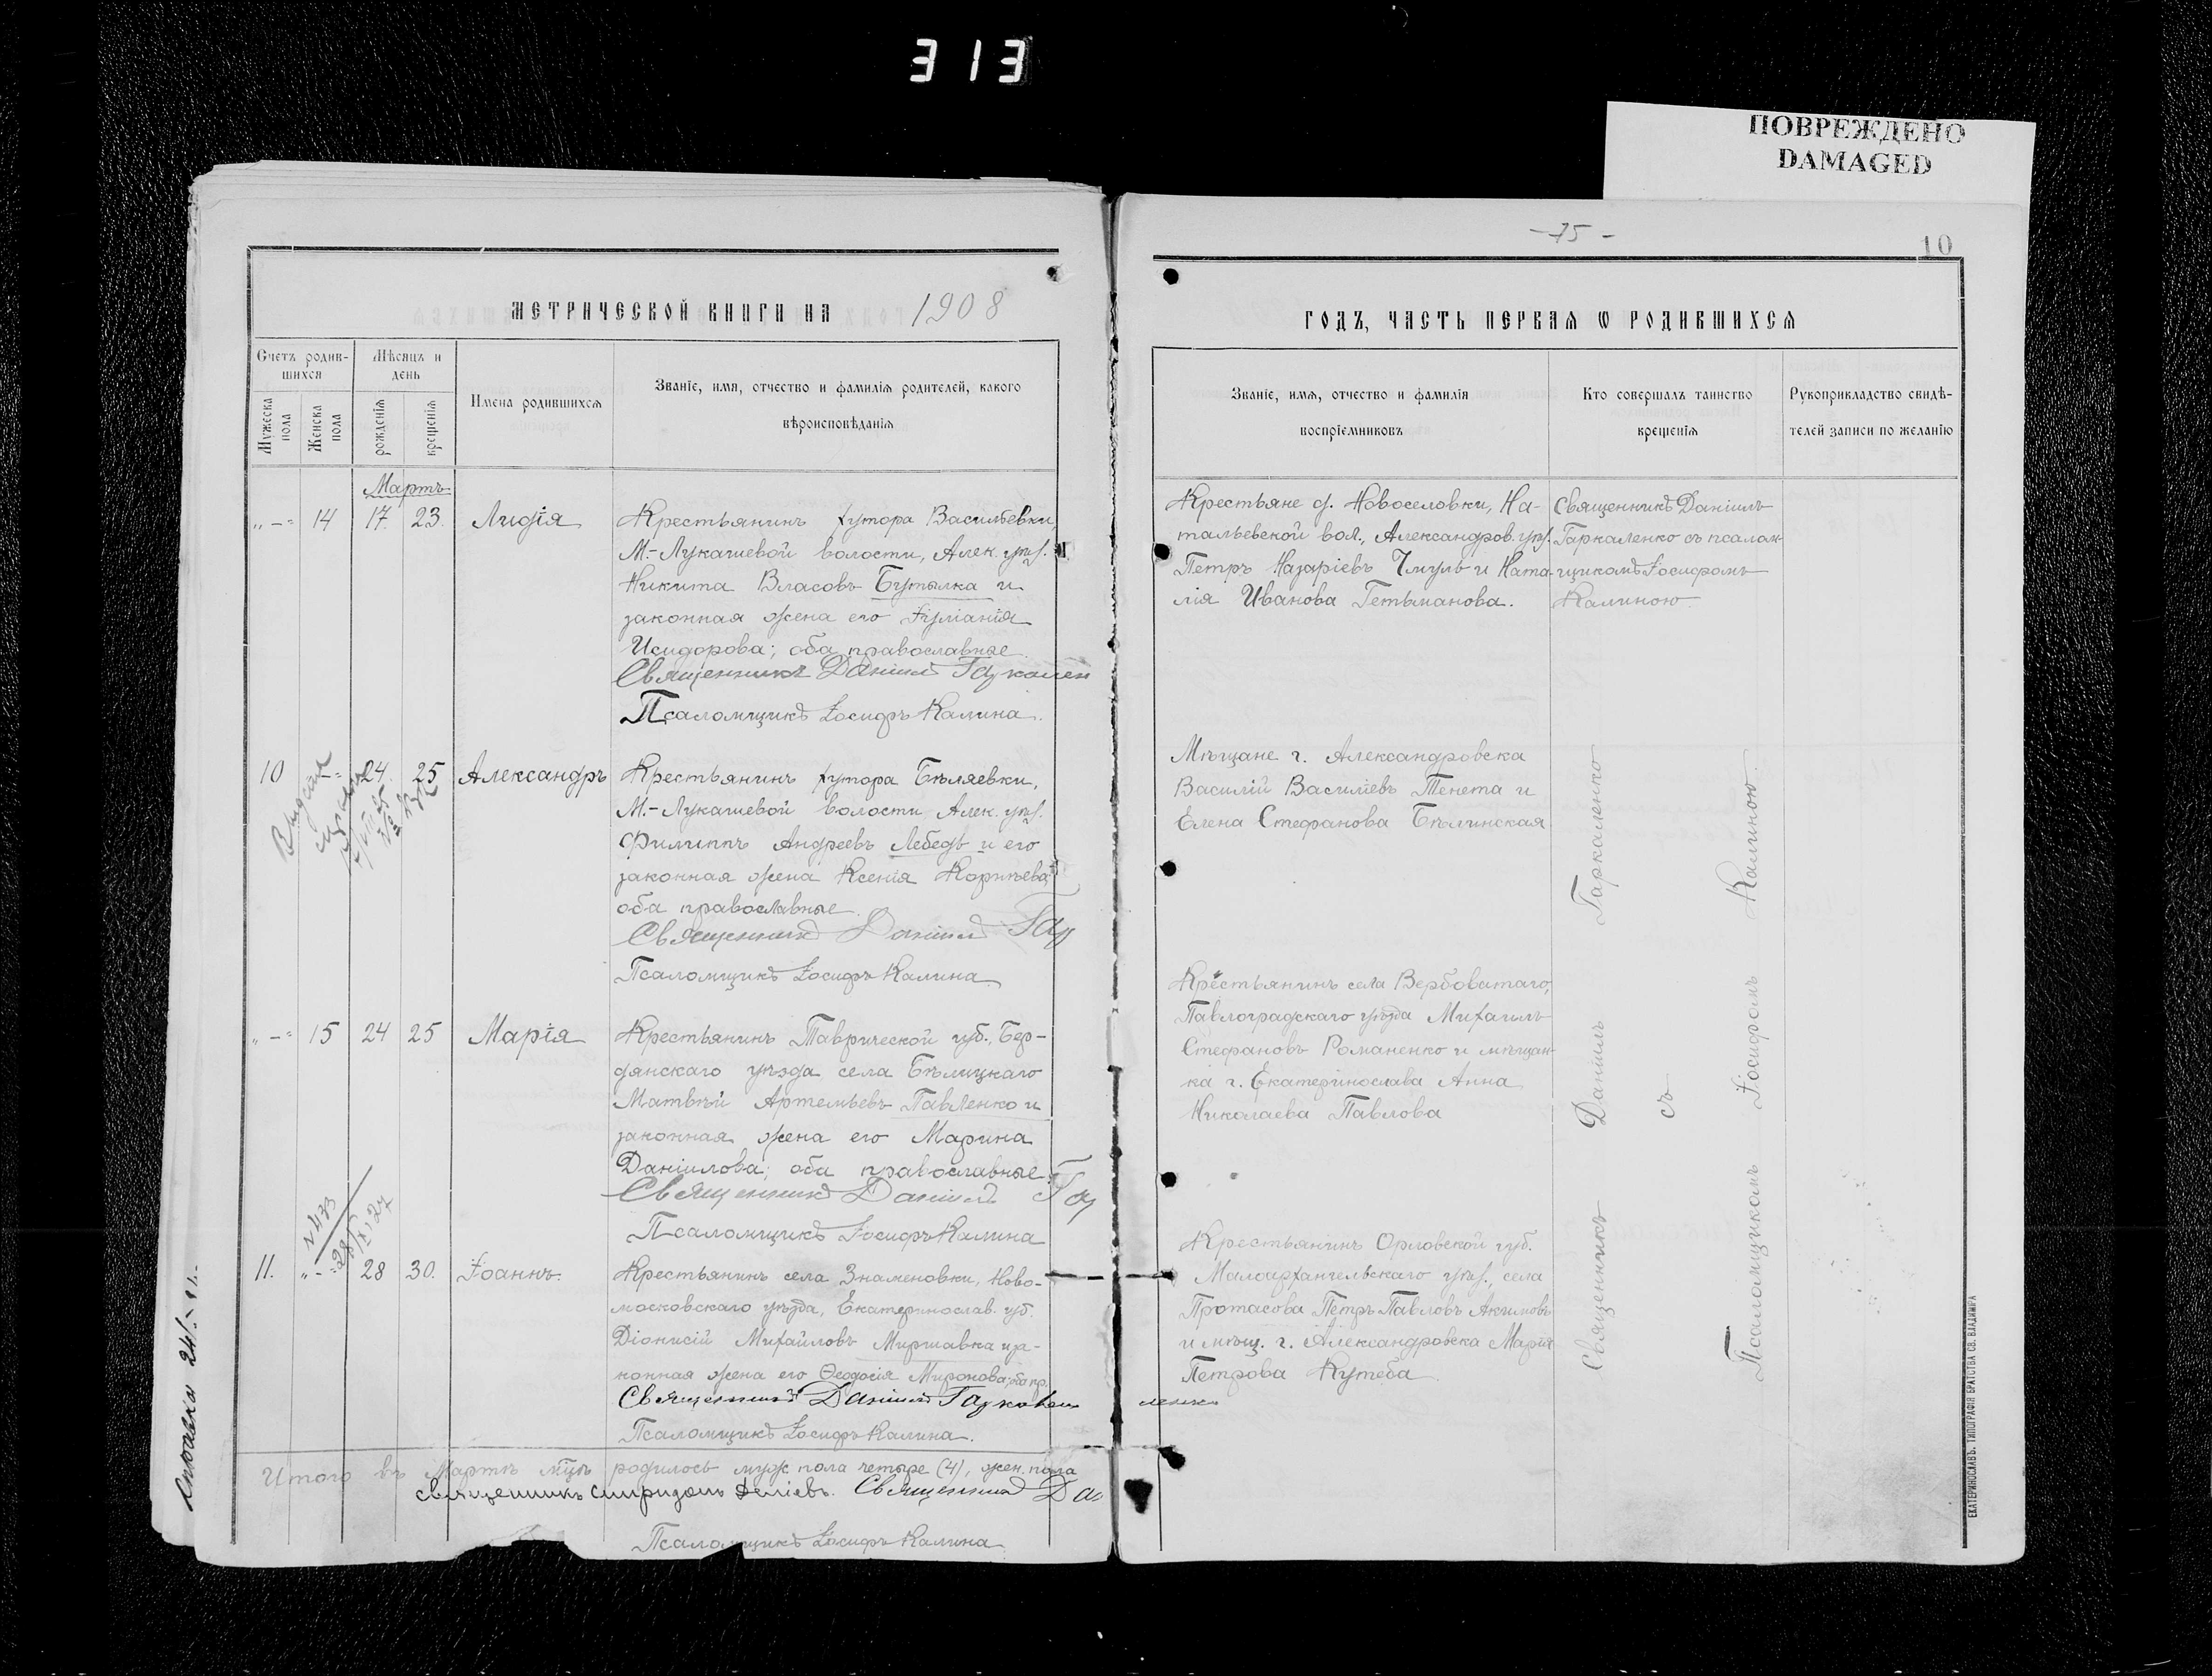 313
ПОВРЕЖДЕНО
DAMAGED
-75-
10
МЕТРИЧЕСКОЙ КНИГИ НА 1908
ГОДЪ, ЧАСТЬ ПЕРВАЯ Ѡ РОДИВШИХСЯ
Счетъ родив-
шихся
Мужеска
пола
Женска
пола
Мѣсяцъ и
день
рожденія
крещенія
Имена родившихся
Званіе, имя, отчество и фамилія родителей, какого
вѣроисповѣданія
Званіе, имя, отчество и фамилія
воспріемниковъ
Кто совершалъ таинство
крещенія
Рукоприкладство свидѣ-
телей записи по желанію
Мартъ
„-" 14 17. 23. Лидія
Крестьянинъ хутора Васильевки,
М.-Лукашевой волости, Алек. уѣз.
Никита Власовъ Бутылка и
законная жена его Іуліанія
Исидорова; оба православные.
Священникъ Даніилъ Гаркален
Псаломщикъ Іосифъ Калина.
Крестьяне д. Новоселовки, На-
тальевской вол., Александров. уѣз.
Петръ Назаріевъ Чмуль и Ната-
лія Иванова Гетьманова.
Священникъ Даніилъ
Гаркаленко съ псалом-
щикомъ Іосифомъ
Калиною.
10 „-" 24. 25 Александръ
Крестьянинъ хутора Бѣляевки,
М.-Лукашевой волости, Алек. уѣз.
Филиппъ Андреевъ Лебедь и его
законная жена Ксенія Корнѣева;
оба православные.
Священникъ Даніилъ Гар
Псаломщикъ Іосифъ Калина.
Мѣщане г. Александровска
Василій Василіевъ Тенета и
Елена Стефанова Бѣлинская
„-" 15 24 25 Марія
Крестьянинъ Таврической губ., Бер-
дянскаго уѣзда села Бѣлицкаго
Матвѣй Артемьевъ Павленко и
законная жена его Марина
Даніилова; оба православные.
Священникъ Даніилъ Гар
Псаломщикъ Іосифъ Калина
Крестьянинъ села Вербоватаго,
Павлоградскаго уѣзда Михаилъ
Стефановъ Романенко и мѣщан-
ка г. Екатеринослава Анна
Николаева Павлова
N 433
28/IX 27
11. „-" 28 30. Іоаннъ.
Крестьянинъ села Знаменовки, Ново-
московскаго уѣзда, Екатеринослав. губ.
Діонисій Михайловъ Миршавка и за-
конная жена его Ѳеодосія Миронова; оба пр.
Священникъ Даніилъ Гаркаленко
Псаломщикъ Іосифъ Калина.
Крестьянинъ Орловской губ.
Малоархангельскаго уѣз., села
Протасова Петръ Павловъ Акимовъ
и мѣщ. г. Александровска Марія
Петрова Кутеба.
Священникъ Даніилъ Гаркаленко
съ
Псаломщикомъ Іосифомъ Калиною.
Итого въ Мартѣ мцѣ родилось муж. пола четыре (4), жен. пола
Священникъ Спиридонъ Священникъ Да
Псаломщикъ Іосифъ Калина
ЕКАТЕРИНОСЛАВЪ. ТИПОГРАФІЯ БРАТСТВА СВ. ВЛАДИМІРА